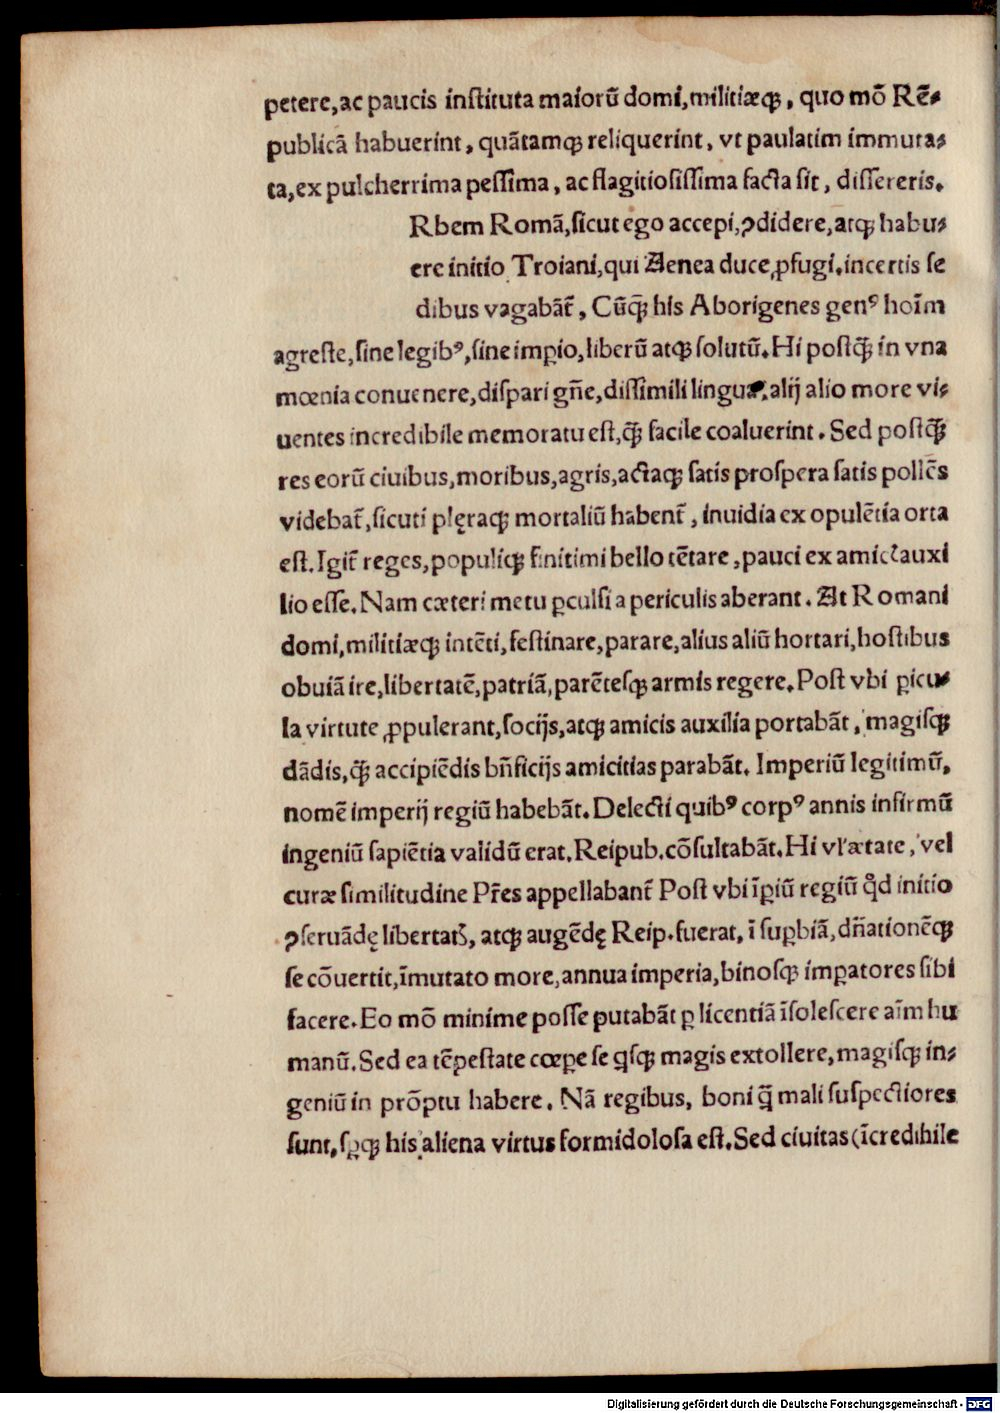 petere,ac paucis instituta maiorū domi,militiæq̨, quo mō Rē⸗
publicā habuerint, quātamq̨ reliquerint, vt paulatim immuta⸗
ta,ex pulcherrima pessima, ac flagitiosissima facta sit, dissereris.
Rbem Romā,sicut ego accepi,ꝯdidere,atq̨ habu⸗
ere initio Troiani,qui Aenea duce ꝓfugi.incertis se
dibus vagabāt̃, Cūq̨̃ his Aborigenes genꝰ hoīm
agreste,sine legibꝰ,sine imꝑio,liberū atq̨ solutū.Hi postq̨̃ in vna
mœnia conuenere,dispari gñe,dissimili lingua,alij alio more vi⸗
uentes incredibile memoratu est,q̨̃ facile coaluerint. Sed postq̨̃
res eorū ciuibus,moribus,agris,actaq̨ satis prospera satis pollēs
videbat̃,sicuti plęraq̨ mortaliū habent̃, inuidia ex opulētia orta
est.Igit̃ reges,populiq̨ finitimi bello tētare,pauci ex amicꝭ auxi
lio esse.Nam cæteri metu ꝑculsi a periculis aberant. At Romani
domi,militiæq̨ intēti,festinare,parare,alius aliū hortari,hostibus
obuiā ire,libertatē,patriā,parētesq̨ armis regere.Post vbi ꝑicu⸗
la virtute ꝓpulerant,socijs,atq̨ amicis auxilia portabāt, magisq̨
dādis,q̨̃ accipiēdis bñficijs amicitias parabāt. Imperiū legitimū,
nomē imperij regiū habebāt.Delecti quibꝰ corpꝰ annis infirmū
ingeniū sapiētia validū erat.Reipub.cōsultabāt.Hi vl' ætate, vel
curæ similitudine Pr̃es appellabant̃ Post vbi īꝑiū regiū qd̉ initio
ꝯseruādę libertatꝭ, atq̨ augēdę Reip.fuerat, ī suꝑbiā, dñationēq̨
se cōuertit,īmutato more,annua imperia,binosq̨ imꝑatores sibi
facere.Eo mō minime posse putabāt ꝑ licentiā īsolescere aīm hu
manū.Sed ea tēpestate cœꝑe se qsq̨ magis extollere,magisq̨ in⸗
geniū in prōptu habere. Nā regibus, boni q̄̃ mali suspectiores
sunt,sꝑq̨ his aliena virtus formidolosa est.Sed ciuitas(īcredibile
Digitalisierung gefördert durch die Deutsche Forschungsgemeinschaft - DFG